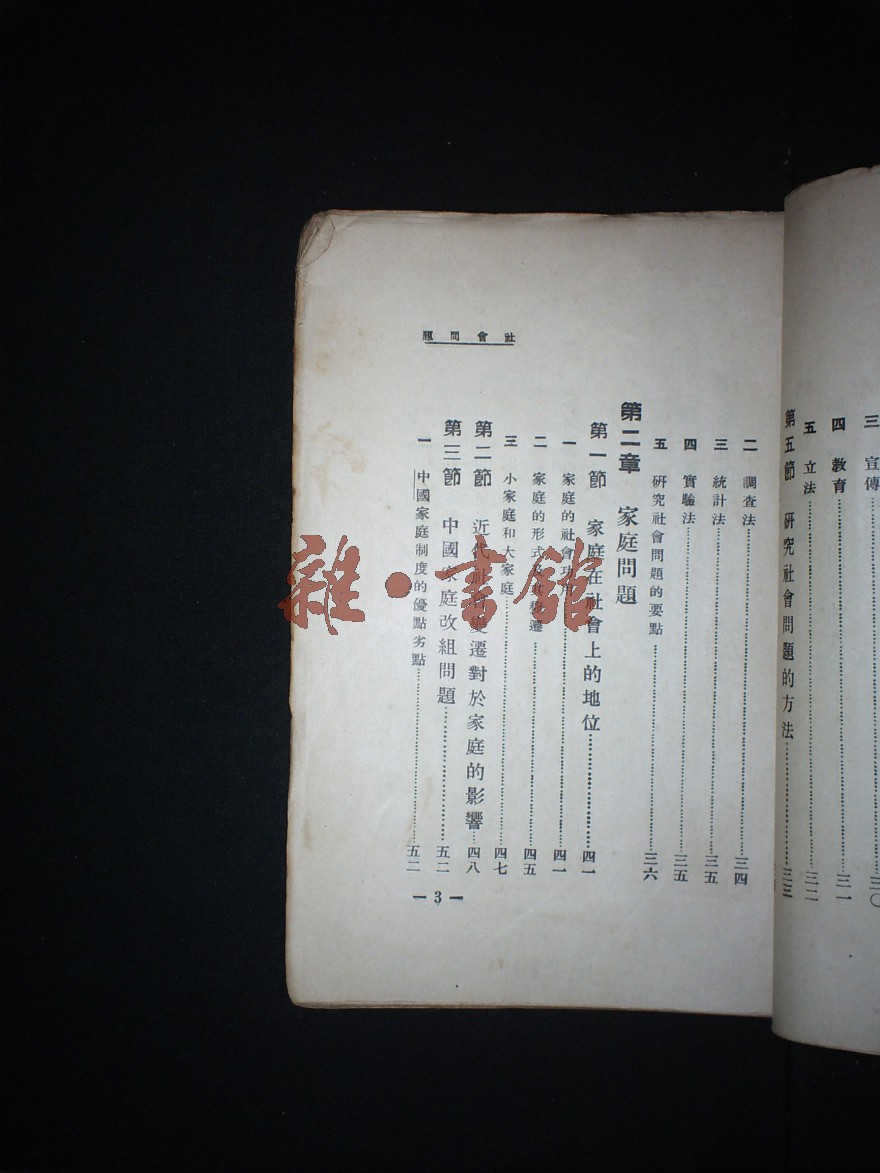 三 宣傳……三〇
四 教育……三一
五 立法……三二
第五節 研究社會問題的方法……三三
社會問題
二 調查法……三四
三 統計法……三五
四 實驗法……三五
五 研究社會問題的要點……三六
第二章 家庭問題
第一節 家庭在社會上的地位……四一
一 家庭的社會功用……四一
二 家庭的形式及其變遷……四五
三 小家庭和大家庭……四七
第二節 近代社會變遷對於家庭的影響……四八
第三節 中國家庭改組問題……五二
一 中國家庭制度的優點劣點……五二
— 3 —
雜·書館